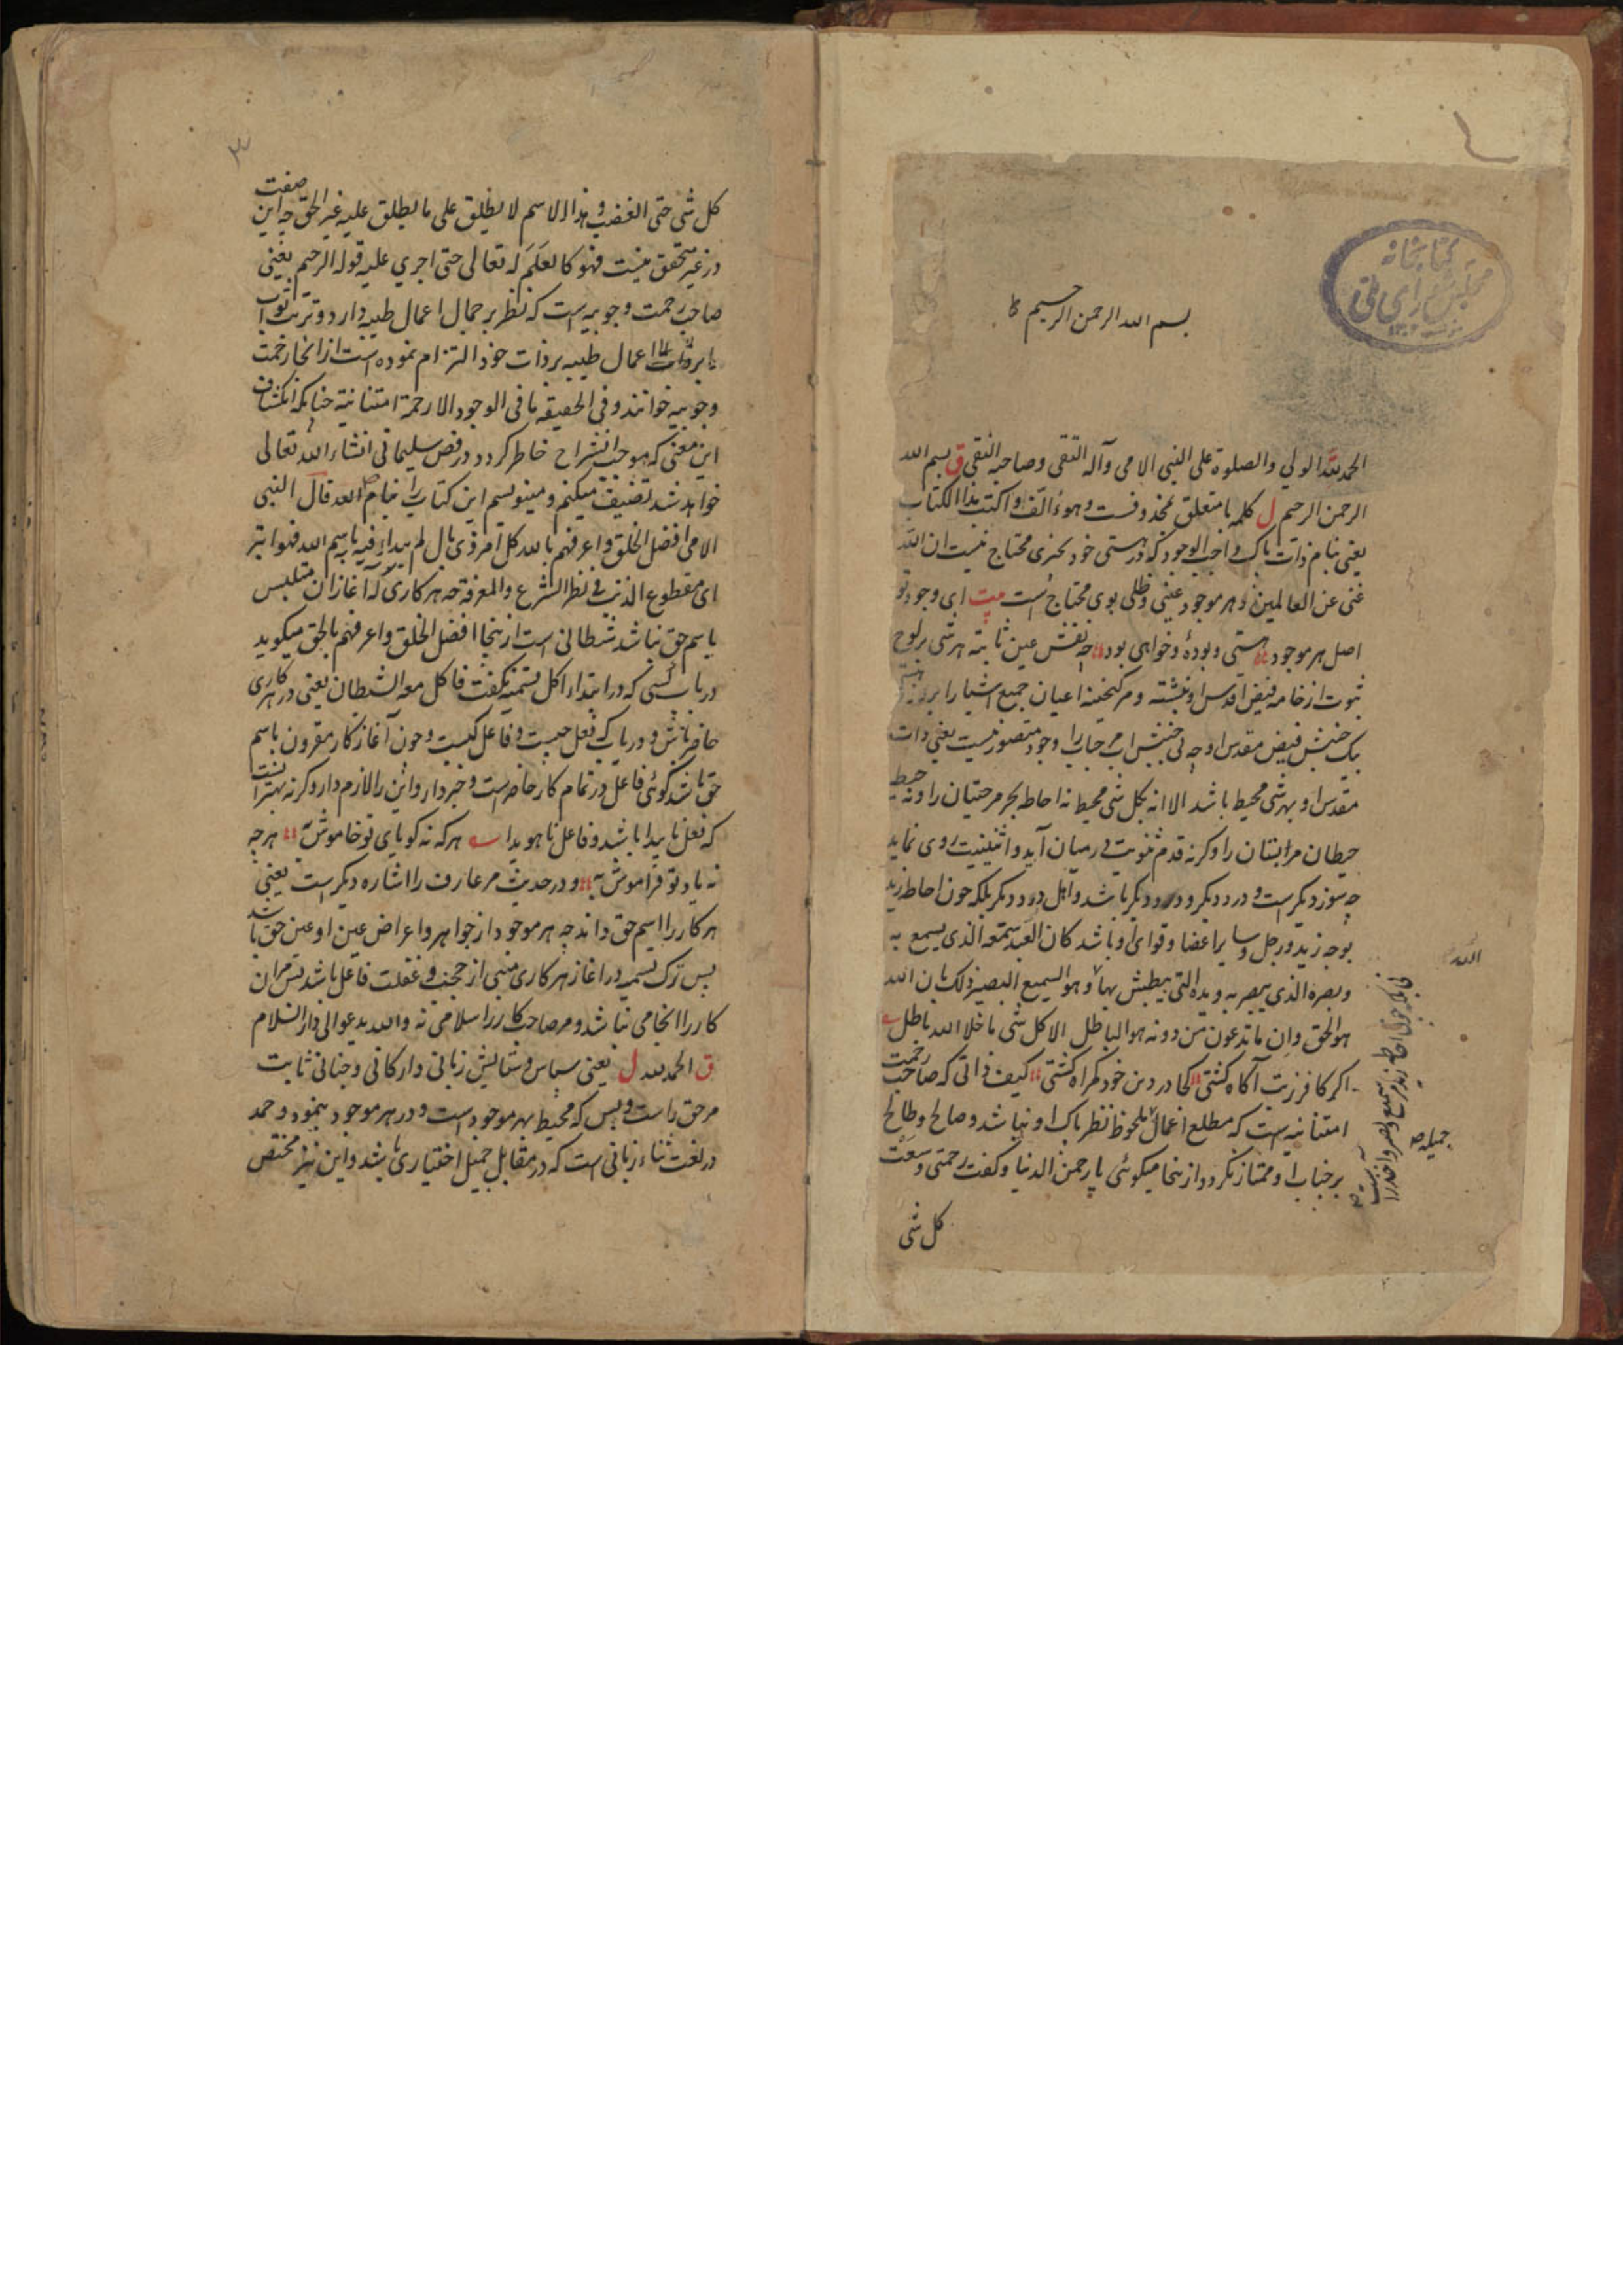 کتابخانه
مجلس شورای ملی
بسم الله الرحمن الرحیم
الحمد لله الولی والصلوة علی النبی الامی وآله التقی وصاحبه النقی ق بسم الله
الرحمن الرحیم ل کلمه با متعلق محذوفست وهو اؤلف او اکتب هذا الکتاب
یعنی بنام ذات پاک واجب الوجود که در هستی خود بچیزی محتاج نیست ان الله
غنی عن العالمین و هر موجود عینی و ظلی بوی محتاج است بیت ای وجود تو
اصل هر موجود هستی و بودهٔ وخواهی بود چه نقش عین ثابته هر شی بر لوح
ثبوت از خامه فیض اقدس او نبشته و مر گنجینه اعیان جمیع اشیا را
یک جنبش فیض مقدس او چه بی جنبش وجود متصور نیست یعنی ذات
مقدس او بهر شی محیط باشد الا انه بکل شی محیط نه احاطه بحر مر حیتان را و نه
حیطان مر بستان را وگرنه قدم ثنویت در میان آید و اثنینیت روی نماید
چه سوز دیگر است و درد دیگر و باشد و اهل درد دیگر بلکه چون احاطه زید
بوجه زید و رجل و سایر اعضا و قوای او باشد کان العبد سمعه الذی یسمع به
وبصره الذی یبصر به ویده التی یبطش بها وهو السمیع البصیر ذلک بان الله
هو الحق وان ما تدعون من دونه هو الباطل الا کل شی ما خلا الله باطل
اگر کافر زبت آگاه گشتی کجا در دین خود گمراه گشتی کیف ذاتی که صاحب رحمت
امتنانیه است که مطلع اعمال ملحوظ نظر پاک او نباشد و صالح و طالح
بر جناب او ممتاز نگردد و از ینجا میگوئی یا رحمن الدنیا و گفت رحمتی وسعت
کل شی
الله
جمیله
۳
کل شی حتی الغضب و هذا الاسم لا یطلق علی ما یطلق علیه غیر الحق چه این صفت
در غیر متحقق نیست فهو کالعلم له تعالی حتی اجری علیه قوله الرحیم یعنی
صاحب رحمت وجوبیه است که نظر بر جمال اعمال طیبه دارد و ترتب ثواب
اعمال طیبه بر ذات خود التزام نموده است از انجا رحمت
وجوبیه خوانند و فی الحقیقه ما فی الوجود الا رحمة امتنانیة چنانکه انکشاف
این معنی که موجب انشراح خاطر گردد در فص سلیمانی انشاء الله تعالی
خواهد شد تصنیف میکنم و مینویسم این کتاب را بنام الله قال النبی
الامی افضل الخلق واعرفهم بالله کل امر ذی بال لم یبداء فیه باسم الله فهو ابتر
ای مقطوع الذنب فی نظر الشرع والمعرفة چه هر کاری که آغاز آن متلبس
باسم حق نباشد شیطانی است از ینجا افضل الخلق واعرفهم بالحق میگوید
در باب کسی که در ابتداء اکل تسمیه نگفت فاکل معه الشیطان یعنی در هر کاری
حاضر باش و دریاب که فعل چیست و فاعل کیست و چون آغاز کار مقرون باسم
حق باشد گوئی فاعل در تمام کار حاضر است و خبردار و این را لازم دار وگرنه بهتر انست
که فعل ناپیدا باشد و فاعل ناهویدا هر که نه گویای تو خاموش به هر چه
نه یاد تو فراموش به و در حدیث مر عارف را اشاره دیگر است یعنی
هر کار را اسم حق داند چه هر موجود از جواهر و اعراض عین او عین حق باشد
پس ترک تسمیه در اغاز هر کاری منبی از حجب و غفلت فاعل باشد پس مر ان
کار را انجامی نباشد و مر صاحب کار را سلامی نه والله یدعو الی دار السلام
ق الحمد لله ل یعنی سپاس و ستایش زبانی و ارکانی و جنانی ثابت
مر حق راست و بس که محیط بهر موجود است و در هر موجود بنمود و حمد
در لغت ثناء زبانی است که در مقابل جمیل اختیاری باشد و این نیز مختص